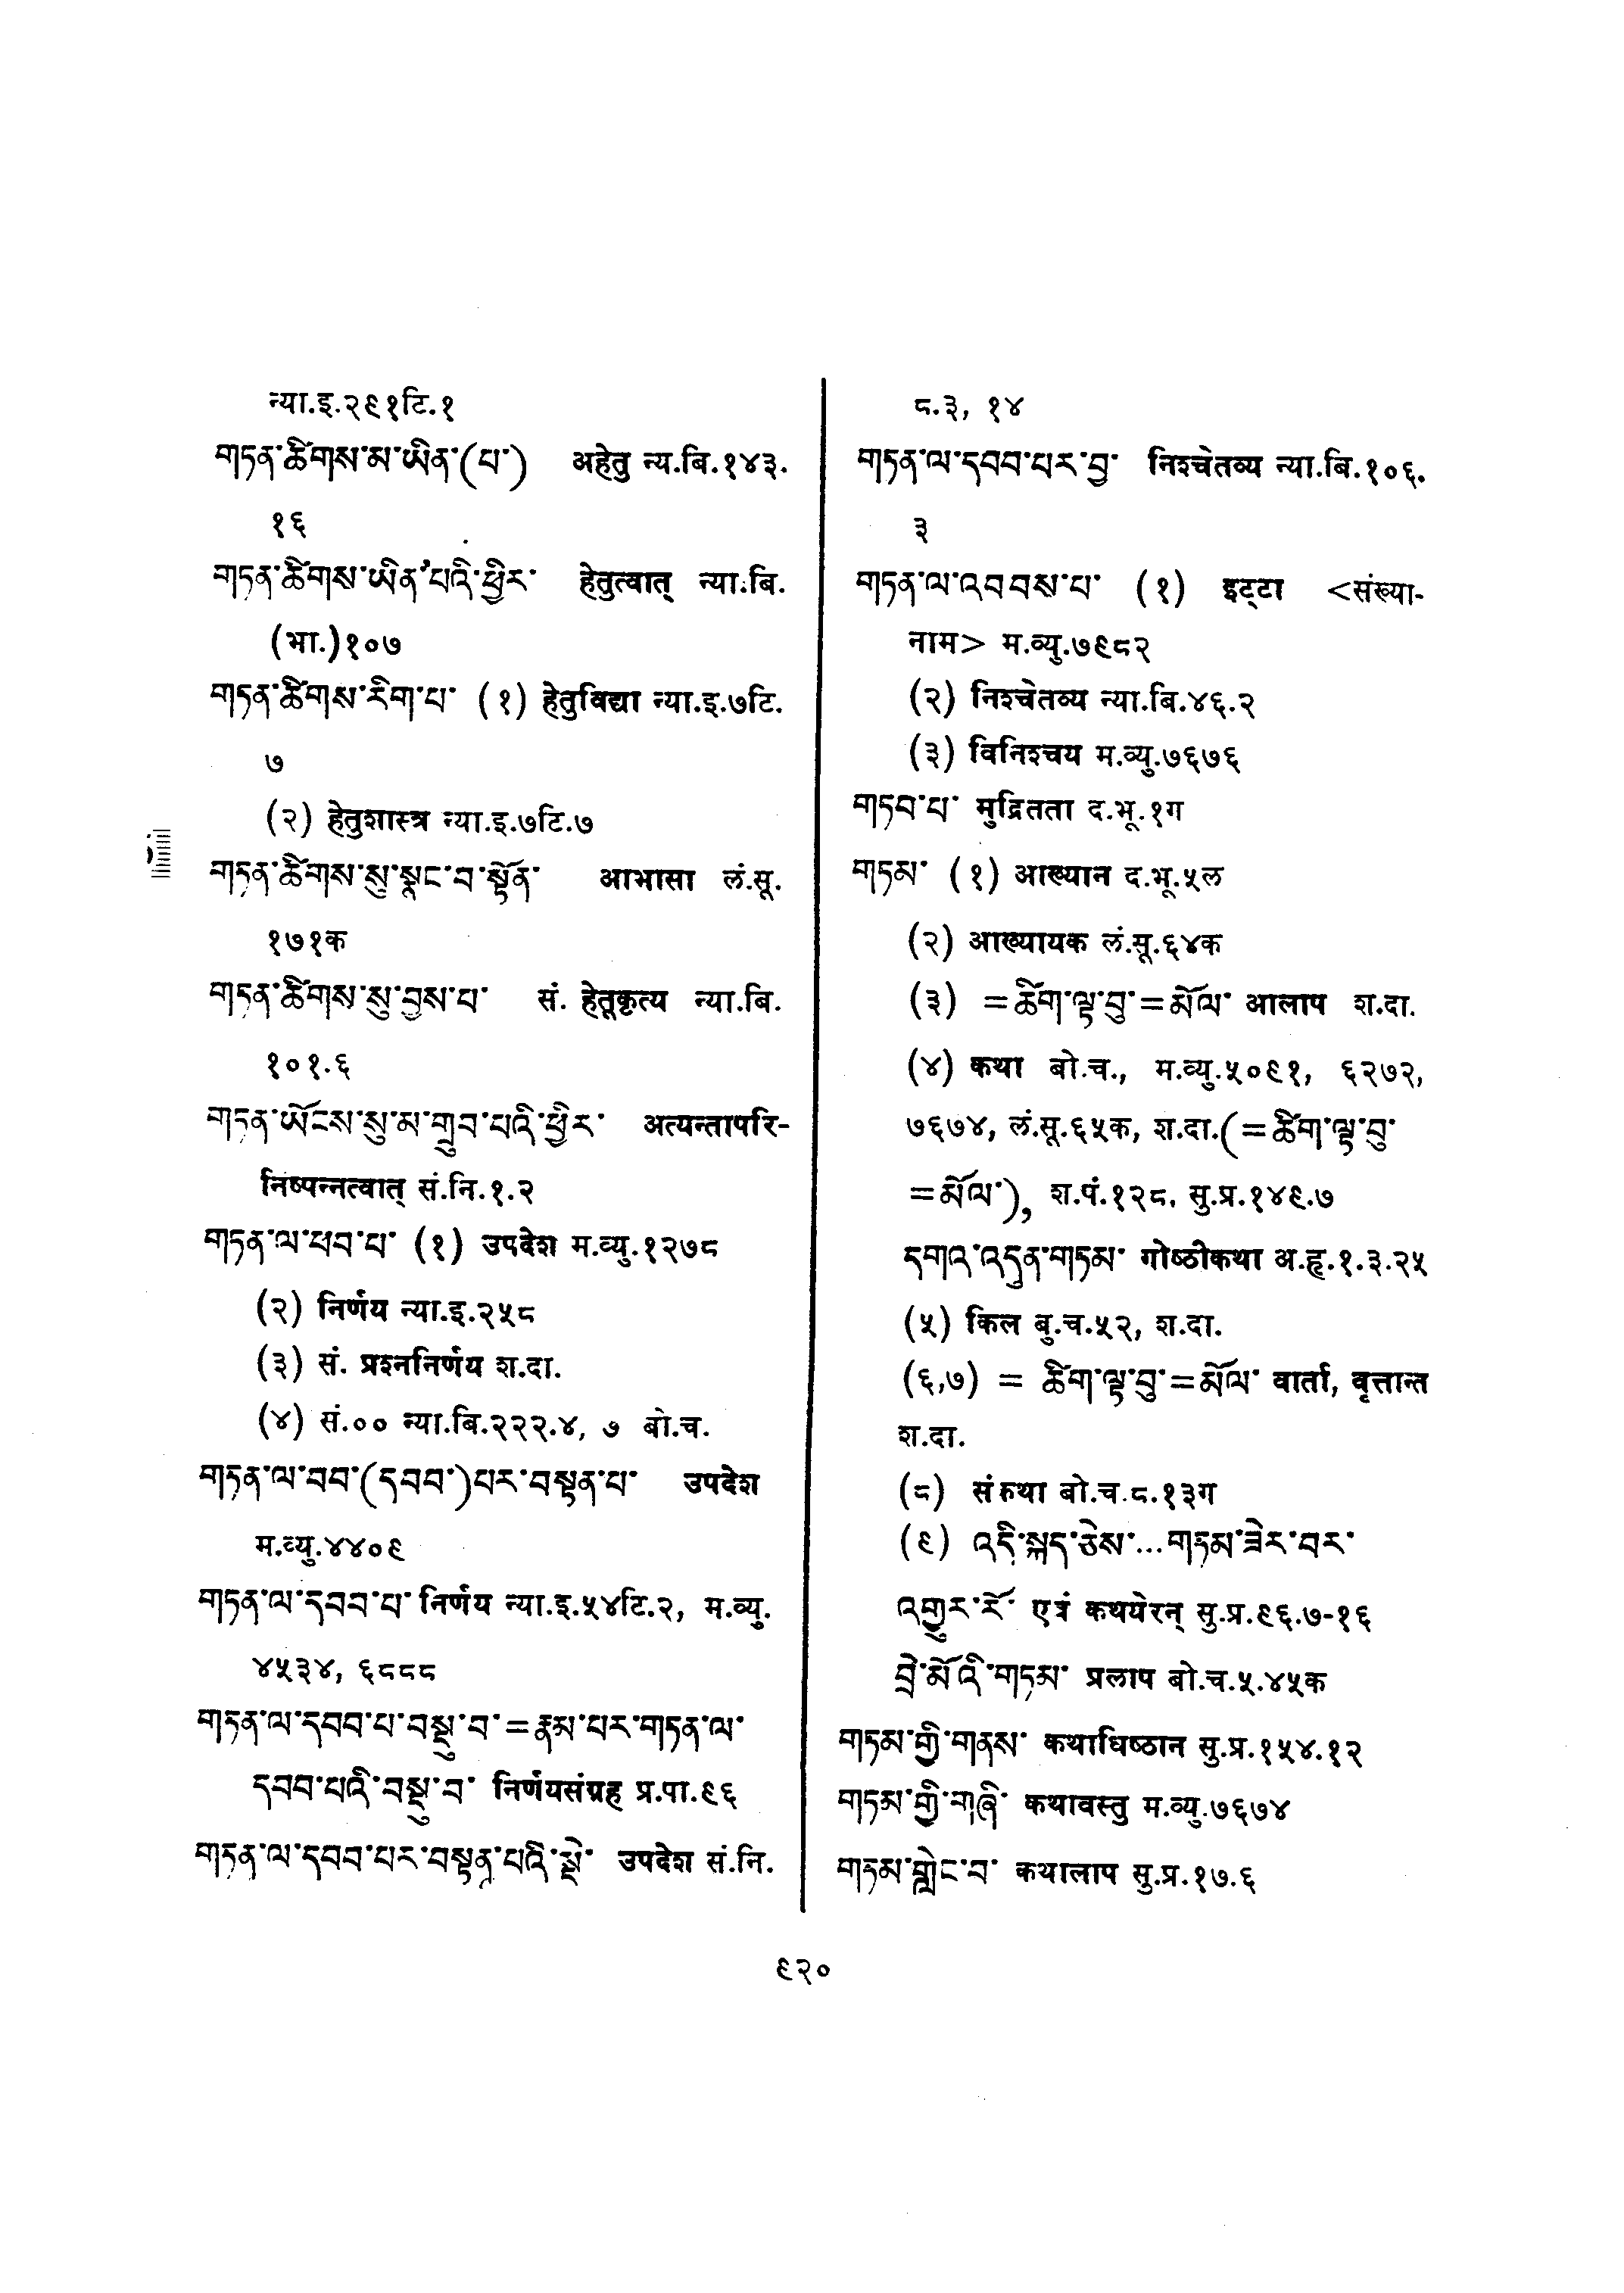 न्या.इ.२९१टि.१
གཏན་ཚིགས་མ་ཡིན་(པ་) अहेतु न्य.बि.१४३.
१६
གཏན་ཚིགས་ཡིན་པའི་ཕྱིར་ हेतुत्वात् न्या.बि.
(भा.)१०७
གཏན་ཚིགས་རིག་པ་ (१) हेतुविद्या न्या.इ.७टि.
७
(२) हेतुशास्त्र न्या.इ.७टि.७
གཏན་ཚིགས་སུ་སྣང་བ་སྟོན་ आभासा लं.सू.
१७१क
གཏན་ཚིགས་སུ་བྱས་པ་ सं. हेतूकृत्य न्या.बि.
१०१.६
གཏན་ཡོངས་སུ་མ་གྲུབ་པའི་ཕྱིར་ अत्यन्तापरि-
निष्पन्नत्वात् सं.नि.१.२
གཏན་ལ་ཕབ་པ་ (१) उपदेश म.व्यु.१२७८
(२) निर्णय न्या.इ.२५८
(३) सं. प्रश्ननिर्णय श.दा.
(४) सं.०० न्या.बि.२२२.४, ७ बो.च.
གཏན་ལ་བབ་(དབབ་)པར་བསྟན་པ་ उपदेश
म.व्यु.४४०९
གཏན་ལ་དབབ་པ་ निर्णय न्या.इ.५४टि.२, म.व्यु.
४५३४, ६८८८
གཏན་ལ་དབབ་པ་བསྡུ་བ་=རྣམ་པར་གཏན་ལ་
དབབ་པའི་བསྡུ་བ་ निर्णयसंग्रह प्र.पा.९६
གཏན་ལ་དབབ་པར་བསྟན་པའི་སྡེ་ उपदेश सं.नि.
८.३, १४
གཏན་ལ་དབབ་པར་བྱ་ निश्चेतव्य न्या.बि.१०६.
३
གཏན་ལ་འབབས་པ་ (१) इट्टा <संख्या-
नाम> म.व्यु.७९८२
(२) निश्चेतव्य न्या.बि.४६.२
(३) विनिश्चय म.व्यु.७६७६
གཏབ་པ་ मुद्रितता द.भू.१ग
གཏམ་ (१) आख्यान द.भू.५ल
(२) आख्यायक लं.सू.६४क
(३) =ཚིག་ལྟ་བུ་=མོལ་ आलाप श.दा.
(४) कथा बो.च., म.व्यु.५०९१, ६२७२,
७६७४, लं.सू.६५क, श.दा.(=ཚིག་ལྟ་བུ་
=མོལ་), श.पं.१२८, सु.प्र.१४९.७
དགའ་འདུན་གཏམ་ गोष्ठीकथा अ.हृ.१.३.२५
(५) किल बु.च.५२, श.दा.
(६,७) = ཚིག་ལྟ་བུ་=མོལ་ वार्ता, वृत्तान्त
श.दा.
(८) संकथा बो.च.८.१३ग
(९) འདི་སྐད་ཅེས་...གཏམ་ཟེར་བར་
འགྱུར་རོ་ एवं कथयेरन् सु.प्र.९६.७-१६
བྲེ་མོའི་གཏམ་ प्रलाप बो.च.५.४५क
གཏམ་གྱི་གནས་ कथाधिष्ठान सु.प्र.१५४.१२
གཏམ་གྱི་གཞི་ कथावस्तु म.व्यु.७६७४
གཏམ་གླེང་བ་ कथालाप सु.प्र.१७.६
९२०